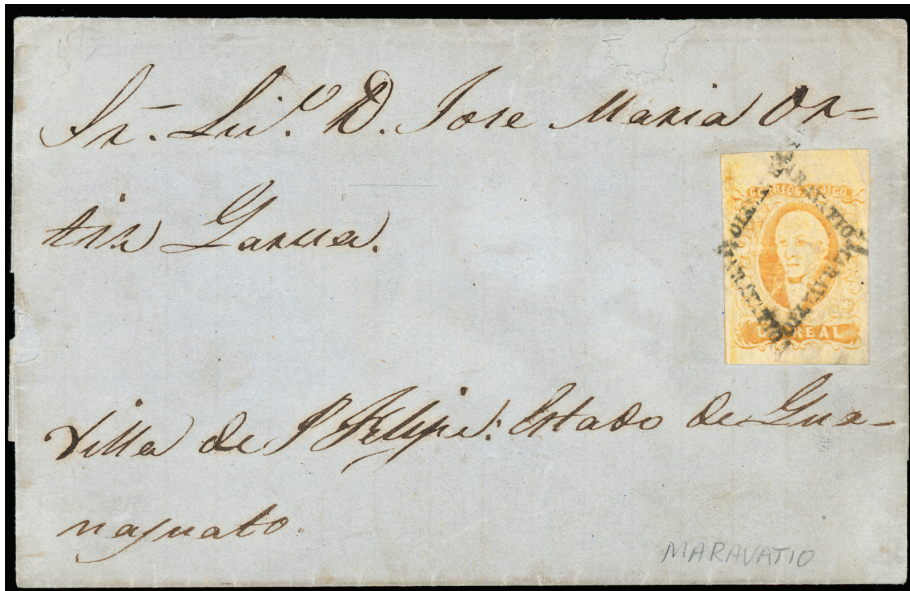 Sr. Lic.º D. Jose Maria Or=
tiz Garcia.
CORREOS MEJICO
UN REAL
MARAVATIO
Villa de S Felipe: Estado de Gua-
najuato.
MARAVATIO